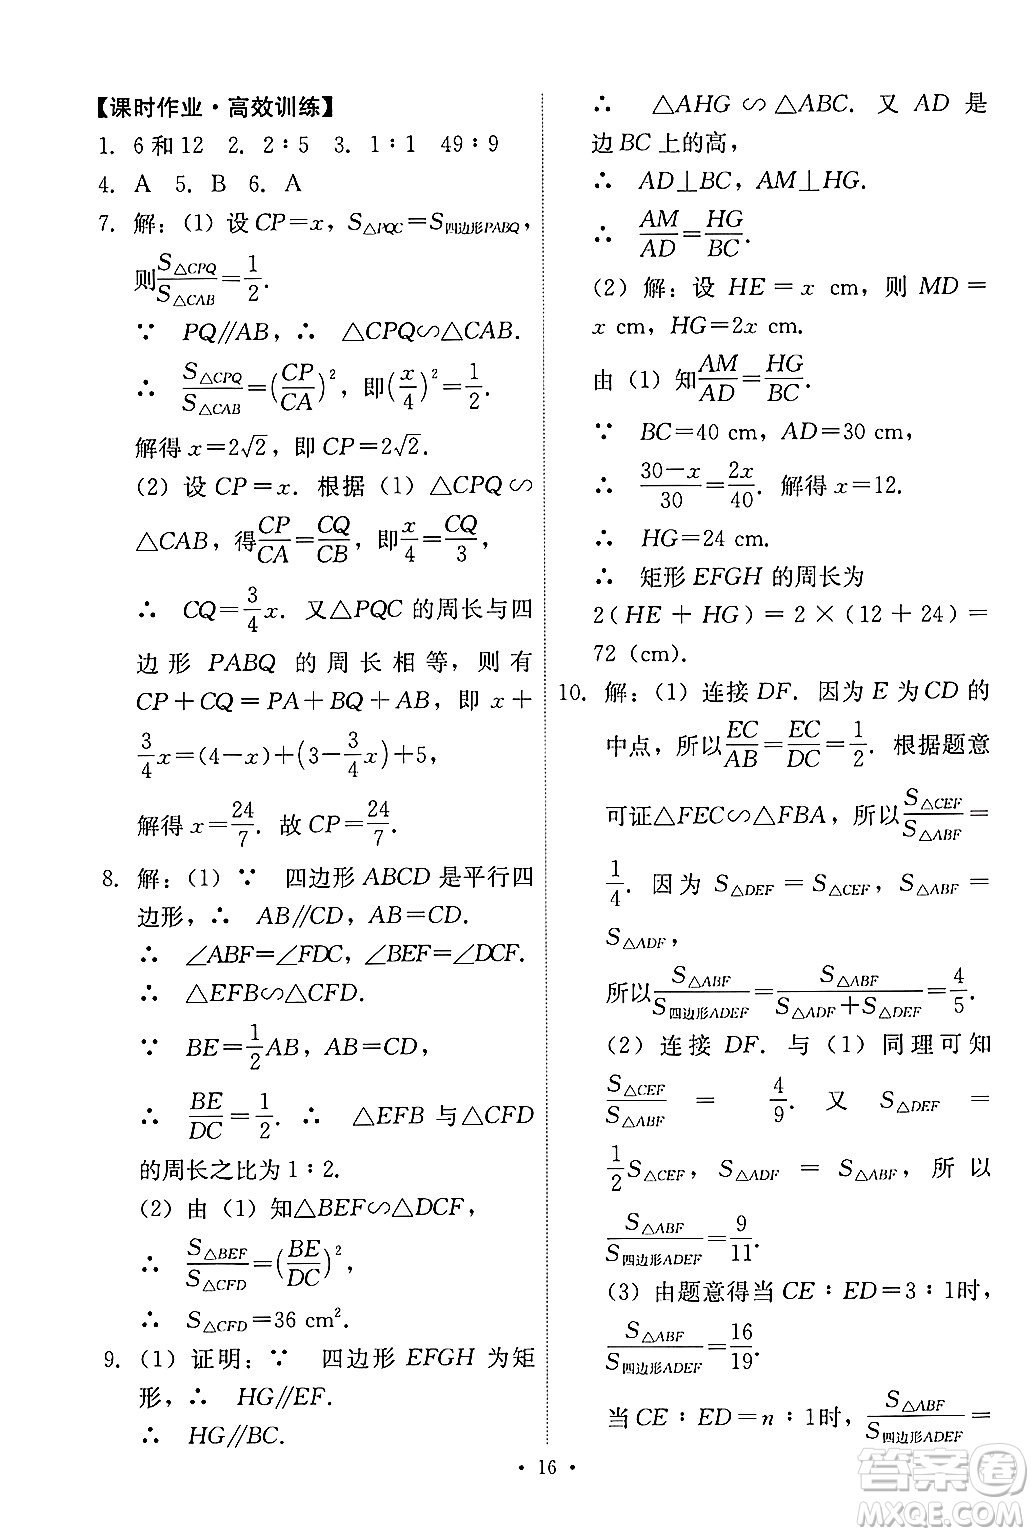 【课时作业·高效训练】
1. 6和12 2. 2∶5 3. 1∶1 49∶9
4. A 5. B 6. A
7. 解：(1) 设 CP=x，S△PQC=S四边形PABQ，
则S△CPQ/S△CAB=1/2.
∵ PQ∥AB，∴ △CPQ∽△CAB.
∴ S△CPQ/S△CAB=(CP/CA)²，即(x/4)²=1/2.
解得 x=2√2，即 CP=2√2.
(2) 设 CP=x. 根据 (1) △CPQ∽
△CAB，得CP/CA=CQ/CB，即x/4=CQ/3，
∴ CQ=3/4x. 又△PQC 的周长与四
边形 PABQ 的周长相等，则有
CP+CQ=PA+BQ+AB，即 x+
3/4x=(4-x)+(3-3/4x)+5，
解得 x=24/7. 故 CP=24/7.
8. 解：(1) ∵ 四边形 ABCD 是平行四
边形，∴ AB∥CD，AB=CD.
∴ ∠ABF=∠FDC，∠EFB=∠DCF.
∴ △EFB∽△CFD.
∵ BE=1/2AB，AB=CD，
∴ BE/DC=1/2. ∴ △EFB 与△CFD
的周长之比为 1∶2.
(2) 由 (1) 知△BEF∽△DCF，
∴ S△BEF/S△CFD=(BE/DC)²，
∴ S△CFD=36 cm².
9. (1) 证明：∵ 四边形 EFGH 为矩
形，∴ HG∥EF.
∴ HG∥BC.
∴ △AHG∽△ABC. 又 AD 是
边 BC 上的高，
∴ AD⊥BC，AM⊥HG.
∴ AM/AD=HG/BC.
(2) 解：设 HE=x cm，则 MD=
x cm，HG=2x cm.
由 (1) 知AM/AD=HG/BC.
∵ BC=40 cm，AD=30 cm，
∴ 30-x/30=2x/40. 解得 x=12.
∴ HG=24 cm.
∴ 矩形 EFGH 的周长为
2(HE+HG)=2×(12+24)=
72 (cm).
10. 解：(1) 连接 DF. 因为 E 为 CD 的
中点，所以EC/AB=EC/DC=1/2. 根据题意
可证△FEC∽△FBA，所以S△CEF/S△ABF=
1/4. 因为 S△DEF=S△CEF，S△ABF=
S△ADF，
所以S△ABF/S四边形ADEF=S△ABF/S△ADF+S△DEF=4/5.
(2) 连接 DF. 与 (1) 同理可知
S△CEF/S△ABF=4/9. 又 S△DEF=
1/2S△CEF，S△ADF=S△ABF，所以
S△ABF/S四边形ADEF=9/11.
(3) 由题意得当 CE∶ED=3∶1时，
S△ABF/S四边形ADEF=16/19.
当 CE∶ED=n∶1时，S△ABF/S四边形ADEF=
· 16 ·
答案卷
MXQE.COM